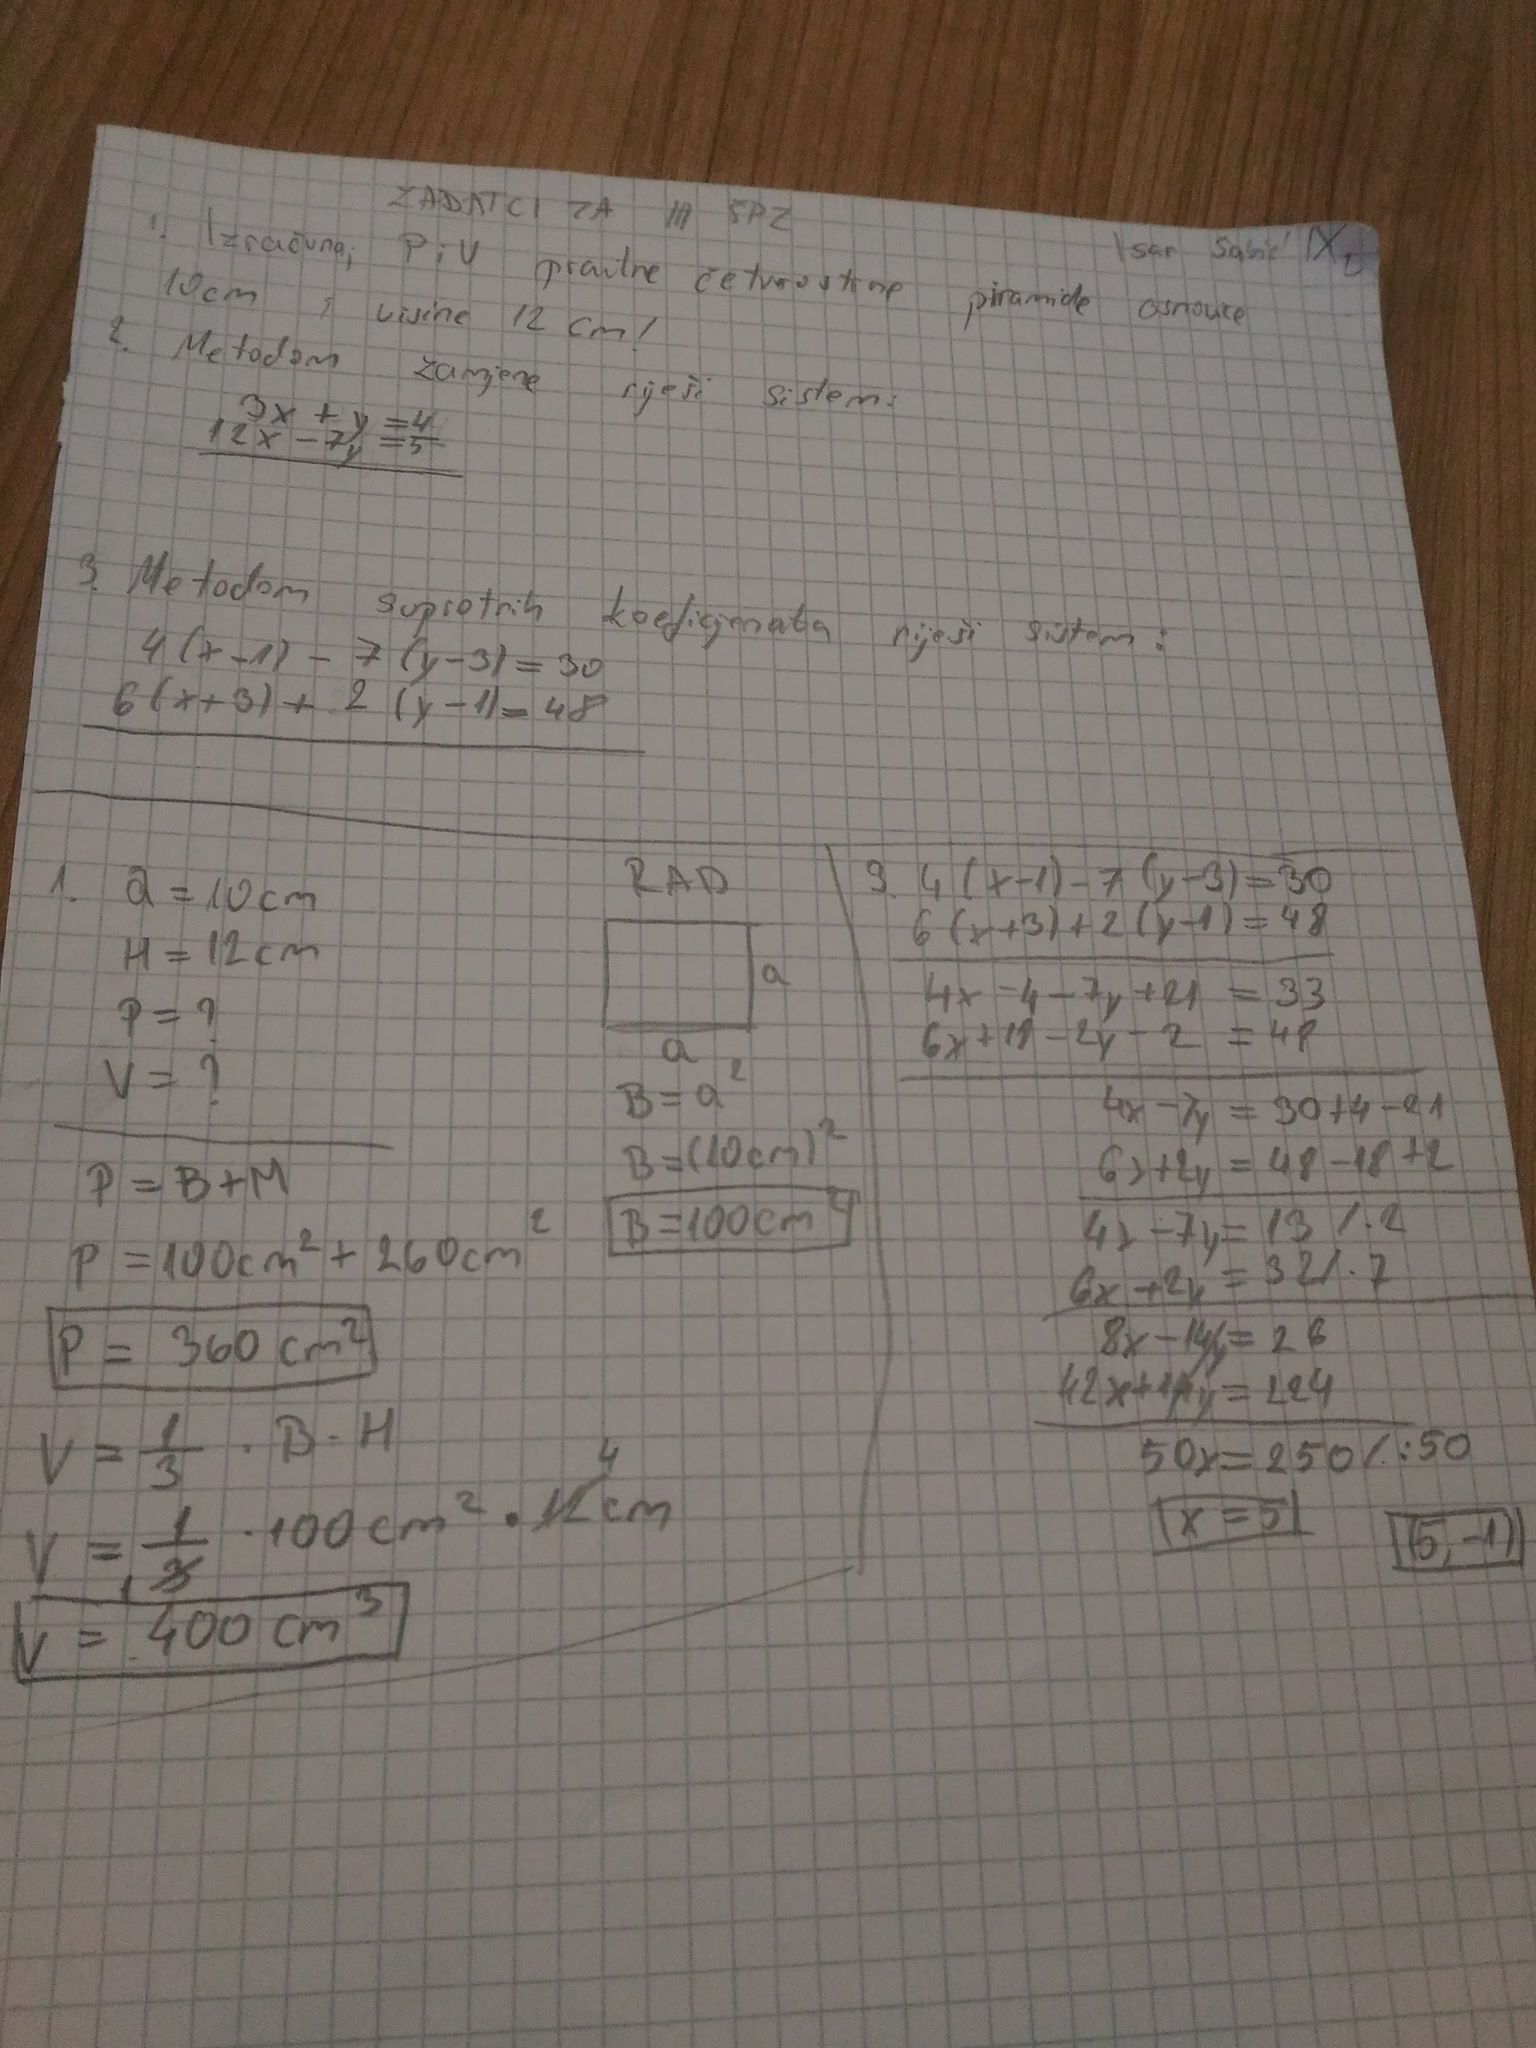 ZADATCI ZA III ŠPZ
Isar Sabić IX D
1. Izračunaj P i V pravilne četverostrane piramide osnovice
10cm i visine 12 cm!
2. Metodom zamjene riješi sistem:
3x + y = 4
12x - 7y = 5
3. Metodom suprotnih koeficjenata riješi sistem:
4(x-1) - 7(y-3) = 30
6(x+3) + 2(y-1) = 48
RAD
1. a = 10cm
H = 12cm
P = ?
V = ?
P = B+M
P = 100cm² + 260cm²
P = 360 cm²
V = 1/3 · B · H
V = 1/3 · 100cm² · 12cm
1
4
V = 400 cm³
a
a
B = a²
B = (10cm)²
B = 100cm²
3. 4(x-1) - 7(y-3) = 30
6(x+3) + 2(y-1) = 48
4x - 4 - 7y + 21 = 33
6x + 18 - 2y - 2 = 48
4x - 7y = 30 + 4 - 21
6x + 2y = 48 - 18 + 2
4x - 7y = 13 /·2
6x + 2y = 32 /·7
8x - 14y = 26
42x + 14y = 224
50x = 250 /:50
x = 5
(5, -1)